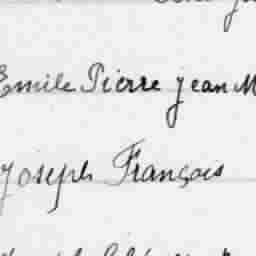 Emile Pierre Jean M
Joseph François